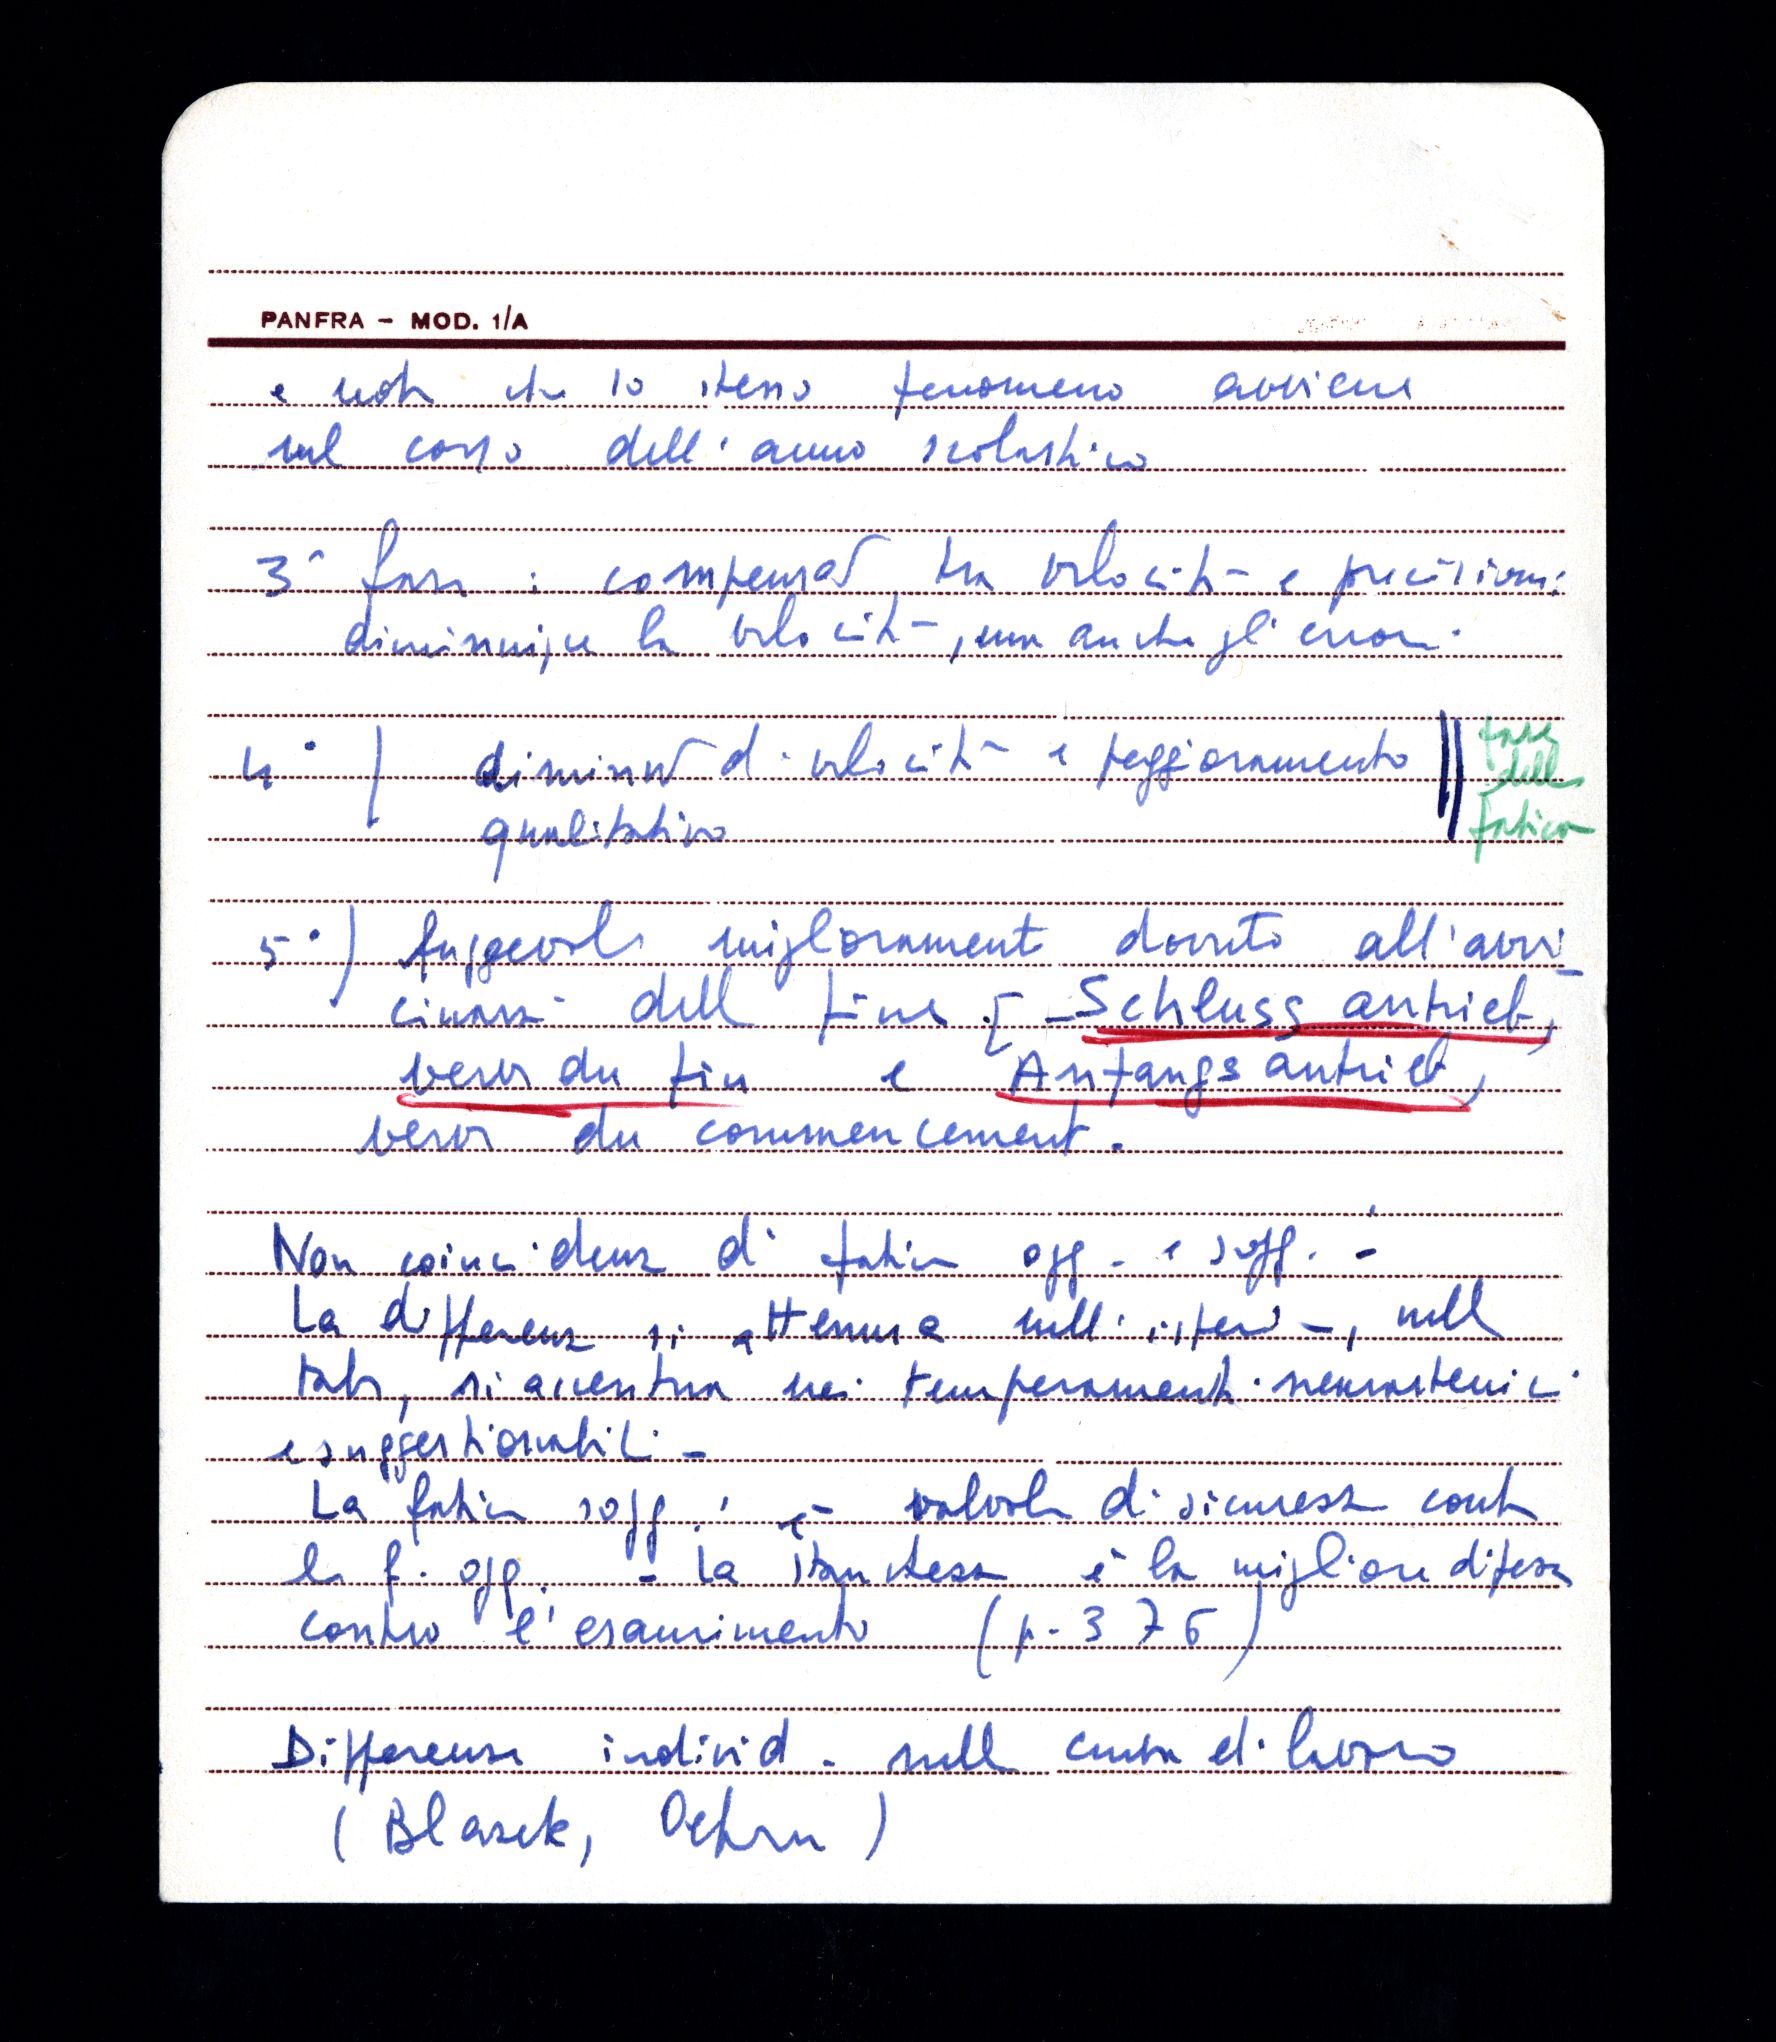 PANFRA – MOD. 1/A
e nota che lo stesso fenomeno avviene
nel corso dell'anno scolastico
3ª fase : tra velocità e precisione:
diminuisce la velocità, ma anche gli errori.
4°) di velocità e peggioramento
qualitativo
fase
della
fatica
5°) fuggevole miglioramento dovuto all'avvi
cinarsi della fine [ - Schluss antrieb,
verve du fin e Anfangs antrieb,
verve du commencement.
Non coincidenza di fatica ogg. e sogg. -
La differenza si attenua nell' , nella
tabe, si accentua nei temperamenti nevrastenici
e suggestionabili -
La fatica sogg. è valvola di sicurezza contro
la f. ogg. - La stanchezza è la migliore difesa
contro l'esaurimento (p. 376)
Differenze individ. nella curva di lavoro
(Blazek, Oehrn)